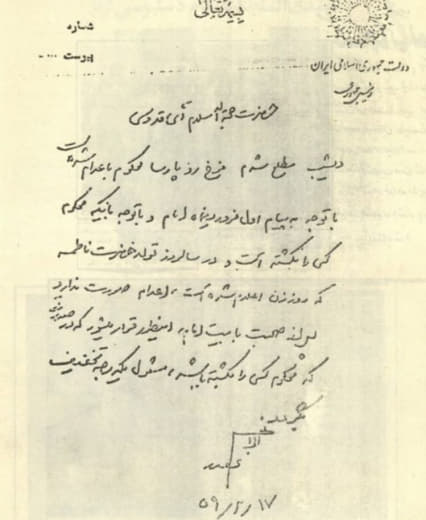 بسمه تعالی
شماره
پیوست
دولت جمهوری اسلامی ایران
حضرت حجة الاسلام آقای قدوسی
دیشب مطلع شدم فرخ رو پارسا محکوم باعدام شده است
با توجه به پیام اول فروردین امام و با توجه باینکه محکوم
کسی را نکشته است و در سالروز تولد حضرت فاطمه
که روز زن اعلام شده است، اعدام صورت ندارد
صحبت با بیت امام قرار که در
که محکوم کسی را نکشته باشد، مشمول یکدرجه تخفیف
۵۹/۲/۱۷